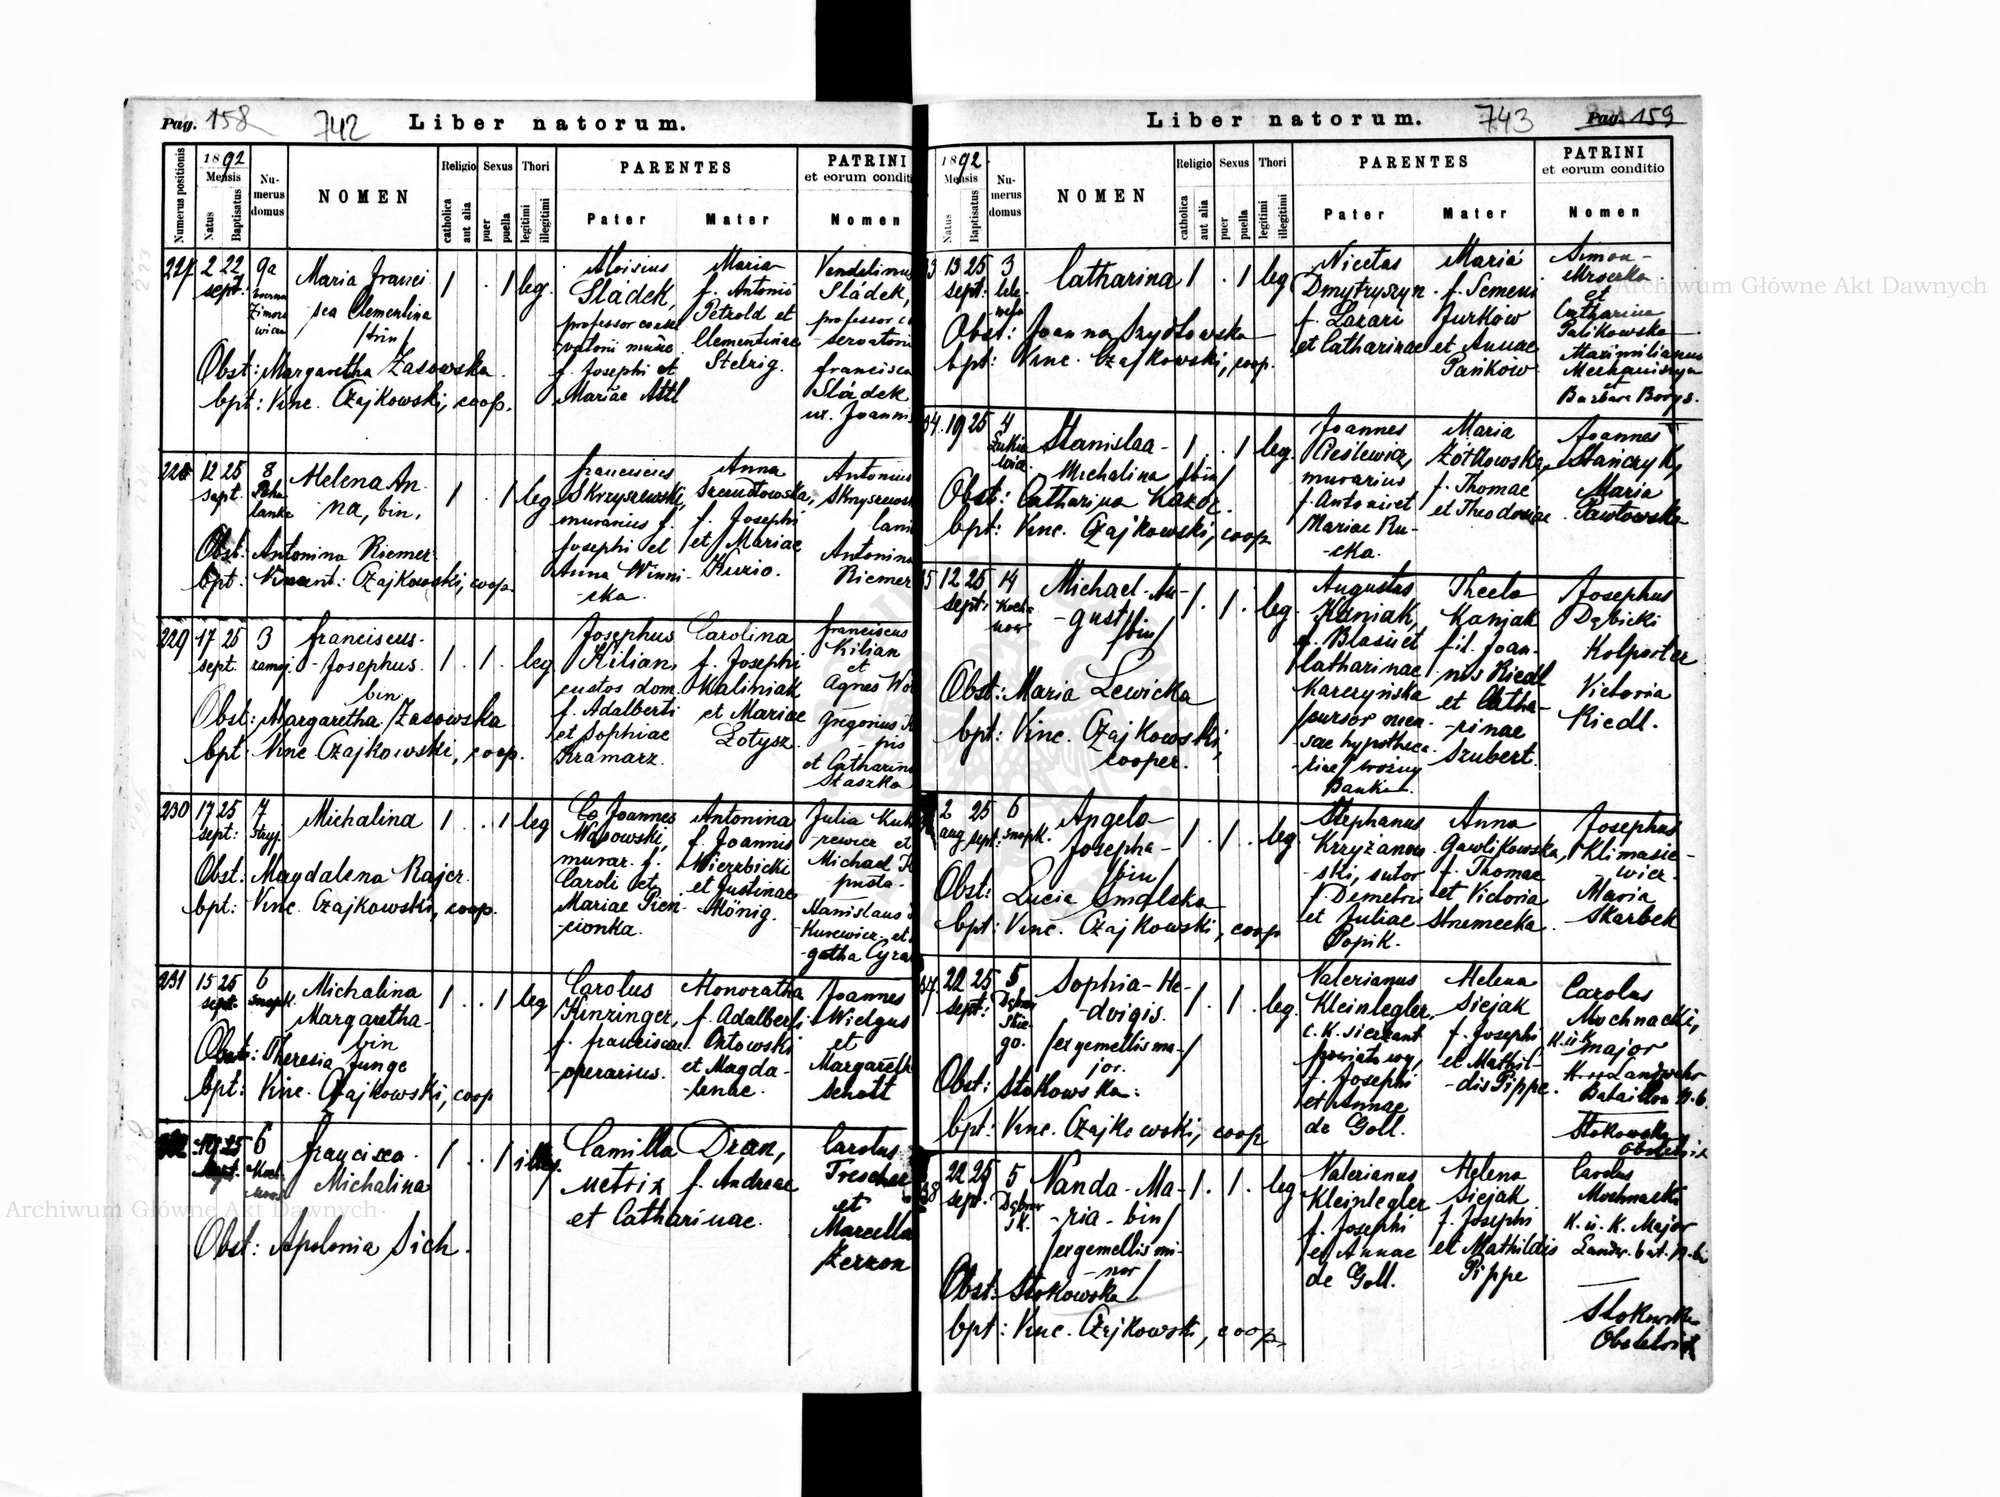 Pag. 158
742
Liber natorum.
Numerus positionis
1892
Mensis
Natus
Baptisatus
Nu-
merus
domus
NOMEN
Religio
catholica
aut alia
Sexus
puer
puella
Thori
legitimi
illegitimi
PARENTES
Pater
Mater
PATRINI
et eorum conditi
Nomen
227
2 22
sept.
9a
Zimoro
wicza
Maria Franci
sca Clementina
/trin/
1 . 1 leg.
Obst: Margaretha Zasowska
bpt: Vinc. Czajkowski, coop.
Aloisius
Sládek,
professor conser
vatorii music
f. Josephi et
Mariae Attl
Maria
f. Antonii
Petzold et
Clementinae
Stebrig.
Vendelinus
Sládek,
professor co
servatori
Francisca
Sládek
ux. Joannis
228
12 25
sept.
8
Pohu
lanka
Helena An
na, bin,
1 . 1 leg
Obst: Antonina Riemer
bpt: Vincent: Czajkowski, coop.
Franciscus
Skrzyszewski,
murarius f.
Josephi et
Anna Winni-
cka.
Anna
Szczudłowska,
f. Josephi
et Mariae
Kuzio.
Antonius
Skrzyszewsk
lani
Antonina
Riemer
229
17 25
sept.
3
zamoj.
Franciscus-
Josephus.
bin
1 . 1 . leg
Obst: Margaretha Zasowska
bpt: Vinc Czajkowski, coop.
Josephus
Kilian,
custos dom.
f. Adalberti
et Sophiae
Kramarz.
Carolina
f. Josephi
Kaliniak
et Mariae
Łotysz
Franciscus
Kilian
et
Agnes
Gregorius
et Catharina
Staszko
230
17 25
sept:
7
Stryj.
Michalina
1 . . 1 leg
Obst: Magdalena Rajer
bpt: Vinc. Czajkowski, coop.
Joannes
Wąsowski,
murar. f.
Caroli et
Mariae Pien-
cionka.
Antonina
f. Joannis
Wierzbicki
et Justinae
König.
Julia
Michael
Stanislaus
Kurewicz et
gatha Cyra
231
15 25
sept.
6
snopk.
Michalina
Margaretha-
bin
1 . . 1 leg
Obst: Theresia Junge
bpt: Vinc. Czajkowski, coop
Carolus
Kinzinger,
f. Franciscae
operarius.
Honoratha
f. Adalberti
Ortowski
et Magda-
lenae.
Joannes
Wielgus
et
Margareth
Schott
232
19 25
sept.
6
Francisca
Michalina
1 . . 1 illeg.
Obst: Apolonia Sich.
Camilla Dran,
netrix f. Andreae
et Catharinae.
Carolus
Trescher
et
Marcella
Zerzon
Liber natorum.
743
Pag. 159
1892
Mensis
Natus
Baptisatus
Nu-
merus
domus
NOMEN
Religio
catholica
aut alia
Sexus
puer
puella
Thori
legitimi
illegitimi
PARENTES
Pater
Mater
PATRINI
et eorum conditio
Nomen
3
13 25
sept:
3
Catharina
1 . 1 leg
Obst: Joanna Szydłowska
bpt: Vinc. Czajkowski, coop.
Nicetas
Dmytryszyn
f. Lazari
et Catharinae
Maria
f. Semeni
Jurkow
et Annae
Pańkow
Simon
Mroczka
et
Catharina
Palikowska
Maximilianus
et
Barbara Borys.
34.
19 25
4
Stanislaa-
Michalina /bin/
1 . 1 leg.
Obst: Catharina Kazor
bpt: Vinc. Czajkowski, coop
Joannes
Cieślewicz,
murarius
f. Antonii et
Mariae Ru-
cka.
Maria
Żółkowska,
f. Thomae
et Theodosiae
Joannes
Stańczyk,
Maria
Pawłowska
35
12 25
sept:
14
Koch-
now
Michael-Au-
gust /bin/
1 . 1 . leg.
Obst: Maria Lewicka
bpt: Vinc. Czajkowski,
cooper.
Augustus
Kaniak,
f. Blasii et
Catharinae
Karczyńska
cursor men-
sae hypotheca-
riae/ woźny
Banku.
Thecla
Kaniak
fil. Joan-
nis Riedl
et Catha-
rinae
Szubert.
Josephus
Dębicki
Kolporter
Victoria
Riedl.
2 25
aug. sept.
6
snopk.
Angela-
Josepha-
bin/
1 . 1 . leg.
Obst: Lucia Smolska
bpt: Vinc. Czajkowski, coop
Stephanus
Krzyżanow-
ski, sutor
f. Demetrii
et Juliae
Popik.
Anna
Gawlikowska,
f. Thomae
et Victoria
Strzemecka.
Josephus
Klimasie-
wicz.
Maria
Skarbek
37.
22 25
sept:
5
Dąbrow
skie-
go.
Sophia-He-
dvigis.
/ex gemellis ma-/
jor.
1 . 1 . leg.
Obst: Stokowska:
bpt: Vinc. Czajkowski, coop
Valerianus
Kleinlegler,
c. k. sierżant
powiatowy,
f. Josephi
et Annae
de Goll.
Helena
Siejak
f. Josephi
et Mathil-
dis Pippe.
Carolus
Mochnacki,
K. u. K. major
Landwehr
Bataillon N. 6.
Stokowska
Obstetrix
38
22 25
sept.
5
Dąbrow
sk.
Vanda-Ma-
ria-bin/
/ex gemellis mi-
nor/
1 . 1 . leg.
Obst: Stokowska
bpt: Vinc. Czajkowski, coop.
Valerianus
Kleinlegler
f. Josephi
et Annae
de Goll.
Helena
Siejak
f. Josephi
et Mathildis
Pippe
Carolus
Mochnacki
K. u. K. Major
Landw. bat. N. 6.
Stokowska
Obstetrix
Archiwum Główne Akt Dawnych
Archiwum Główne Akt Dawnych